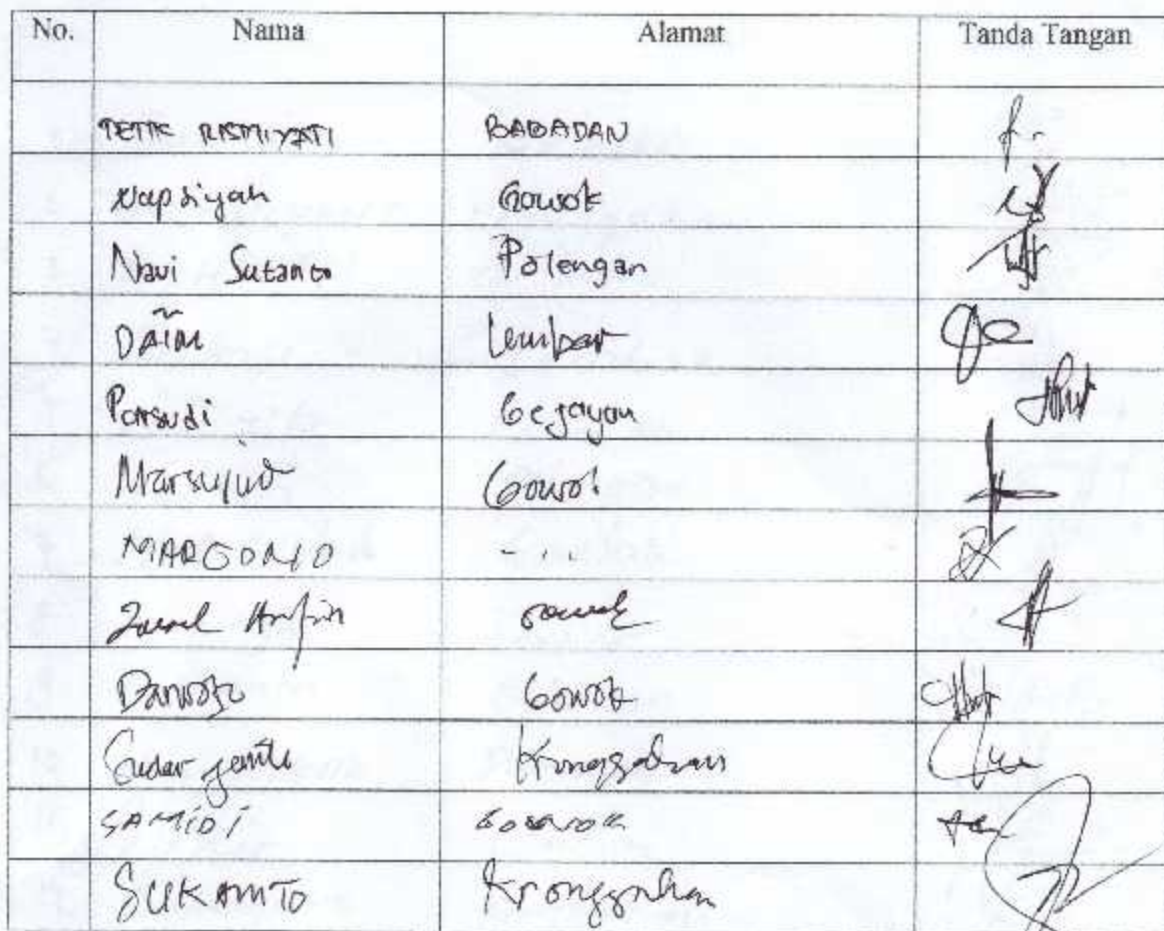 No. Nama Alamat Tanda Tangan
TETIK RISMIYATI BABADAN
Napsiyah Gowok
Navi Sutanto Polengan
DAIM Lembar
Parsudi Gejayan
Marsujud Gowok
MARGONO - ...
Zaenal Arifin Gowok
Darwoto Gowok
Sudaryanto Kronggahan
SAMIDI Gowok
SUKAMTO Kronggahan